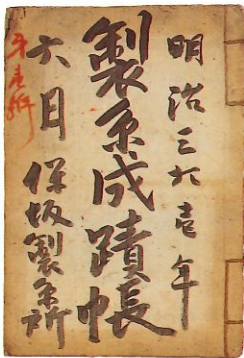 明治三十壱年
製糸成蹟帳
六月 保坂製糸所